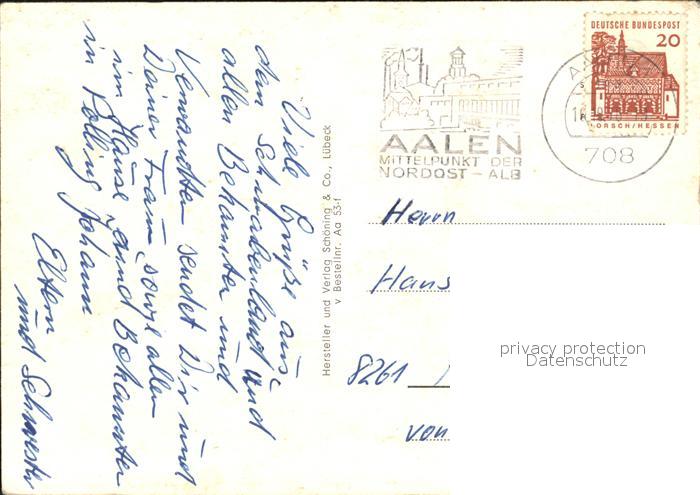 Viele Grüße aus
dem Schwabenland und
allen Bekannten und
Verwandten sendet Dir und
Deiner Frau, sowie allen
im Hause, und Bekannten
in Polling Johann
Eltern
und Schwester
Hersteller und Verlag Schöning & Co., Lübeck
v Bestellnr. Aa 53-f
AALEN
MITTELPUNKT DER
NORDOST-ALB
DEUTSCHE BUNDESPOST
20
LORSCH/HESSEN
708
Herrn
Hans
8261
von
privacy protection
Datenschutz